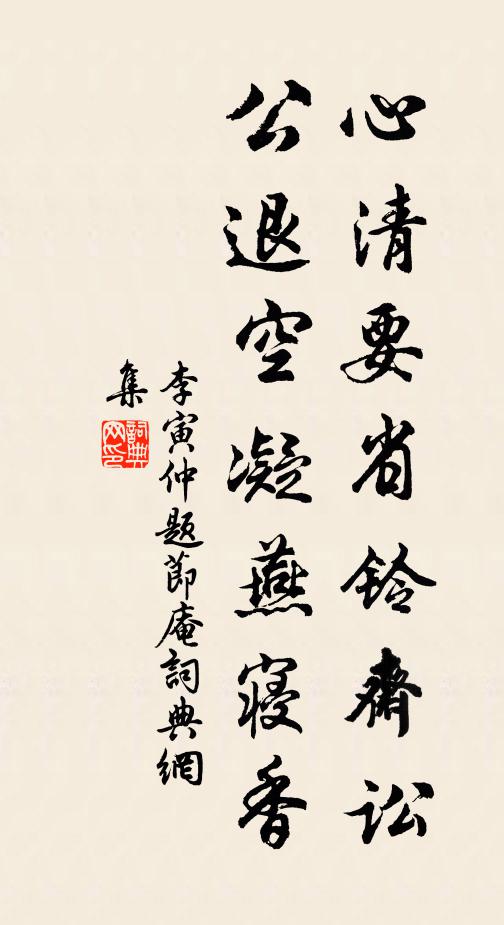 心清要省鈴齋訟
公退空凝燕寢香
李寅仲題節庵詞典網
集
詞典
网印